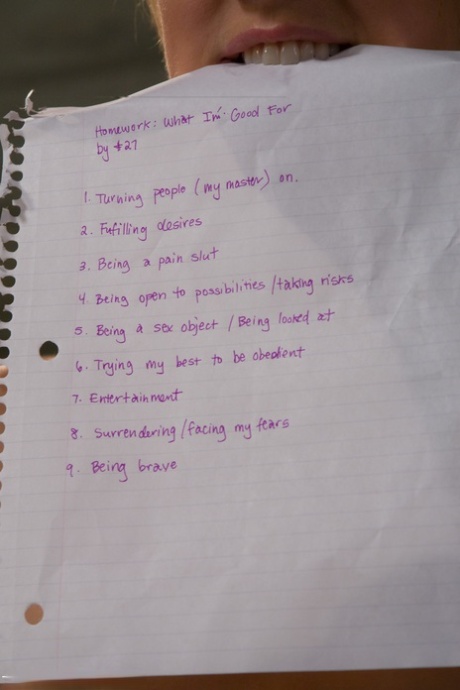 Homework: What I'm Good For
by #27
1. Turning people (my master) on.
2. Fufilling desires
3. Being a pain slut
4. Being open to possibilities / taking risks
5. Being a sex object / Being looked at
6. Trying my best to be obedient
7. Entertainment
8. Surrendering / facing my fears
9. Being brave